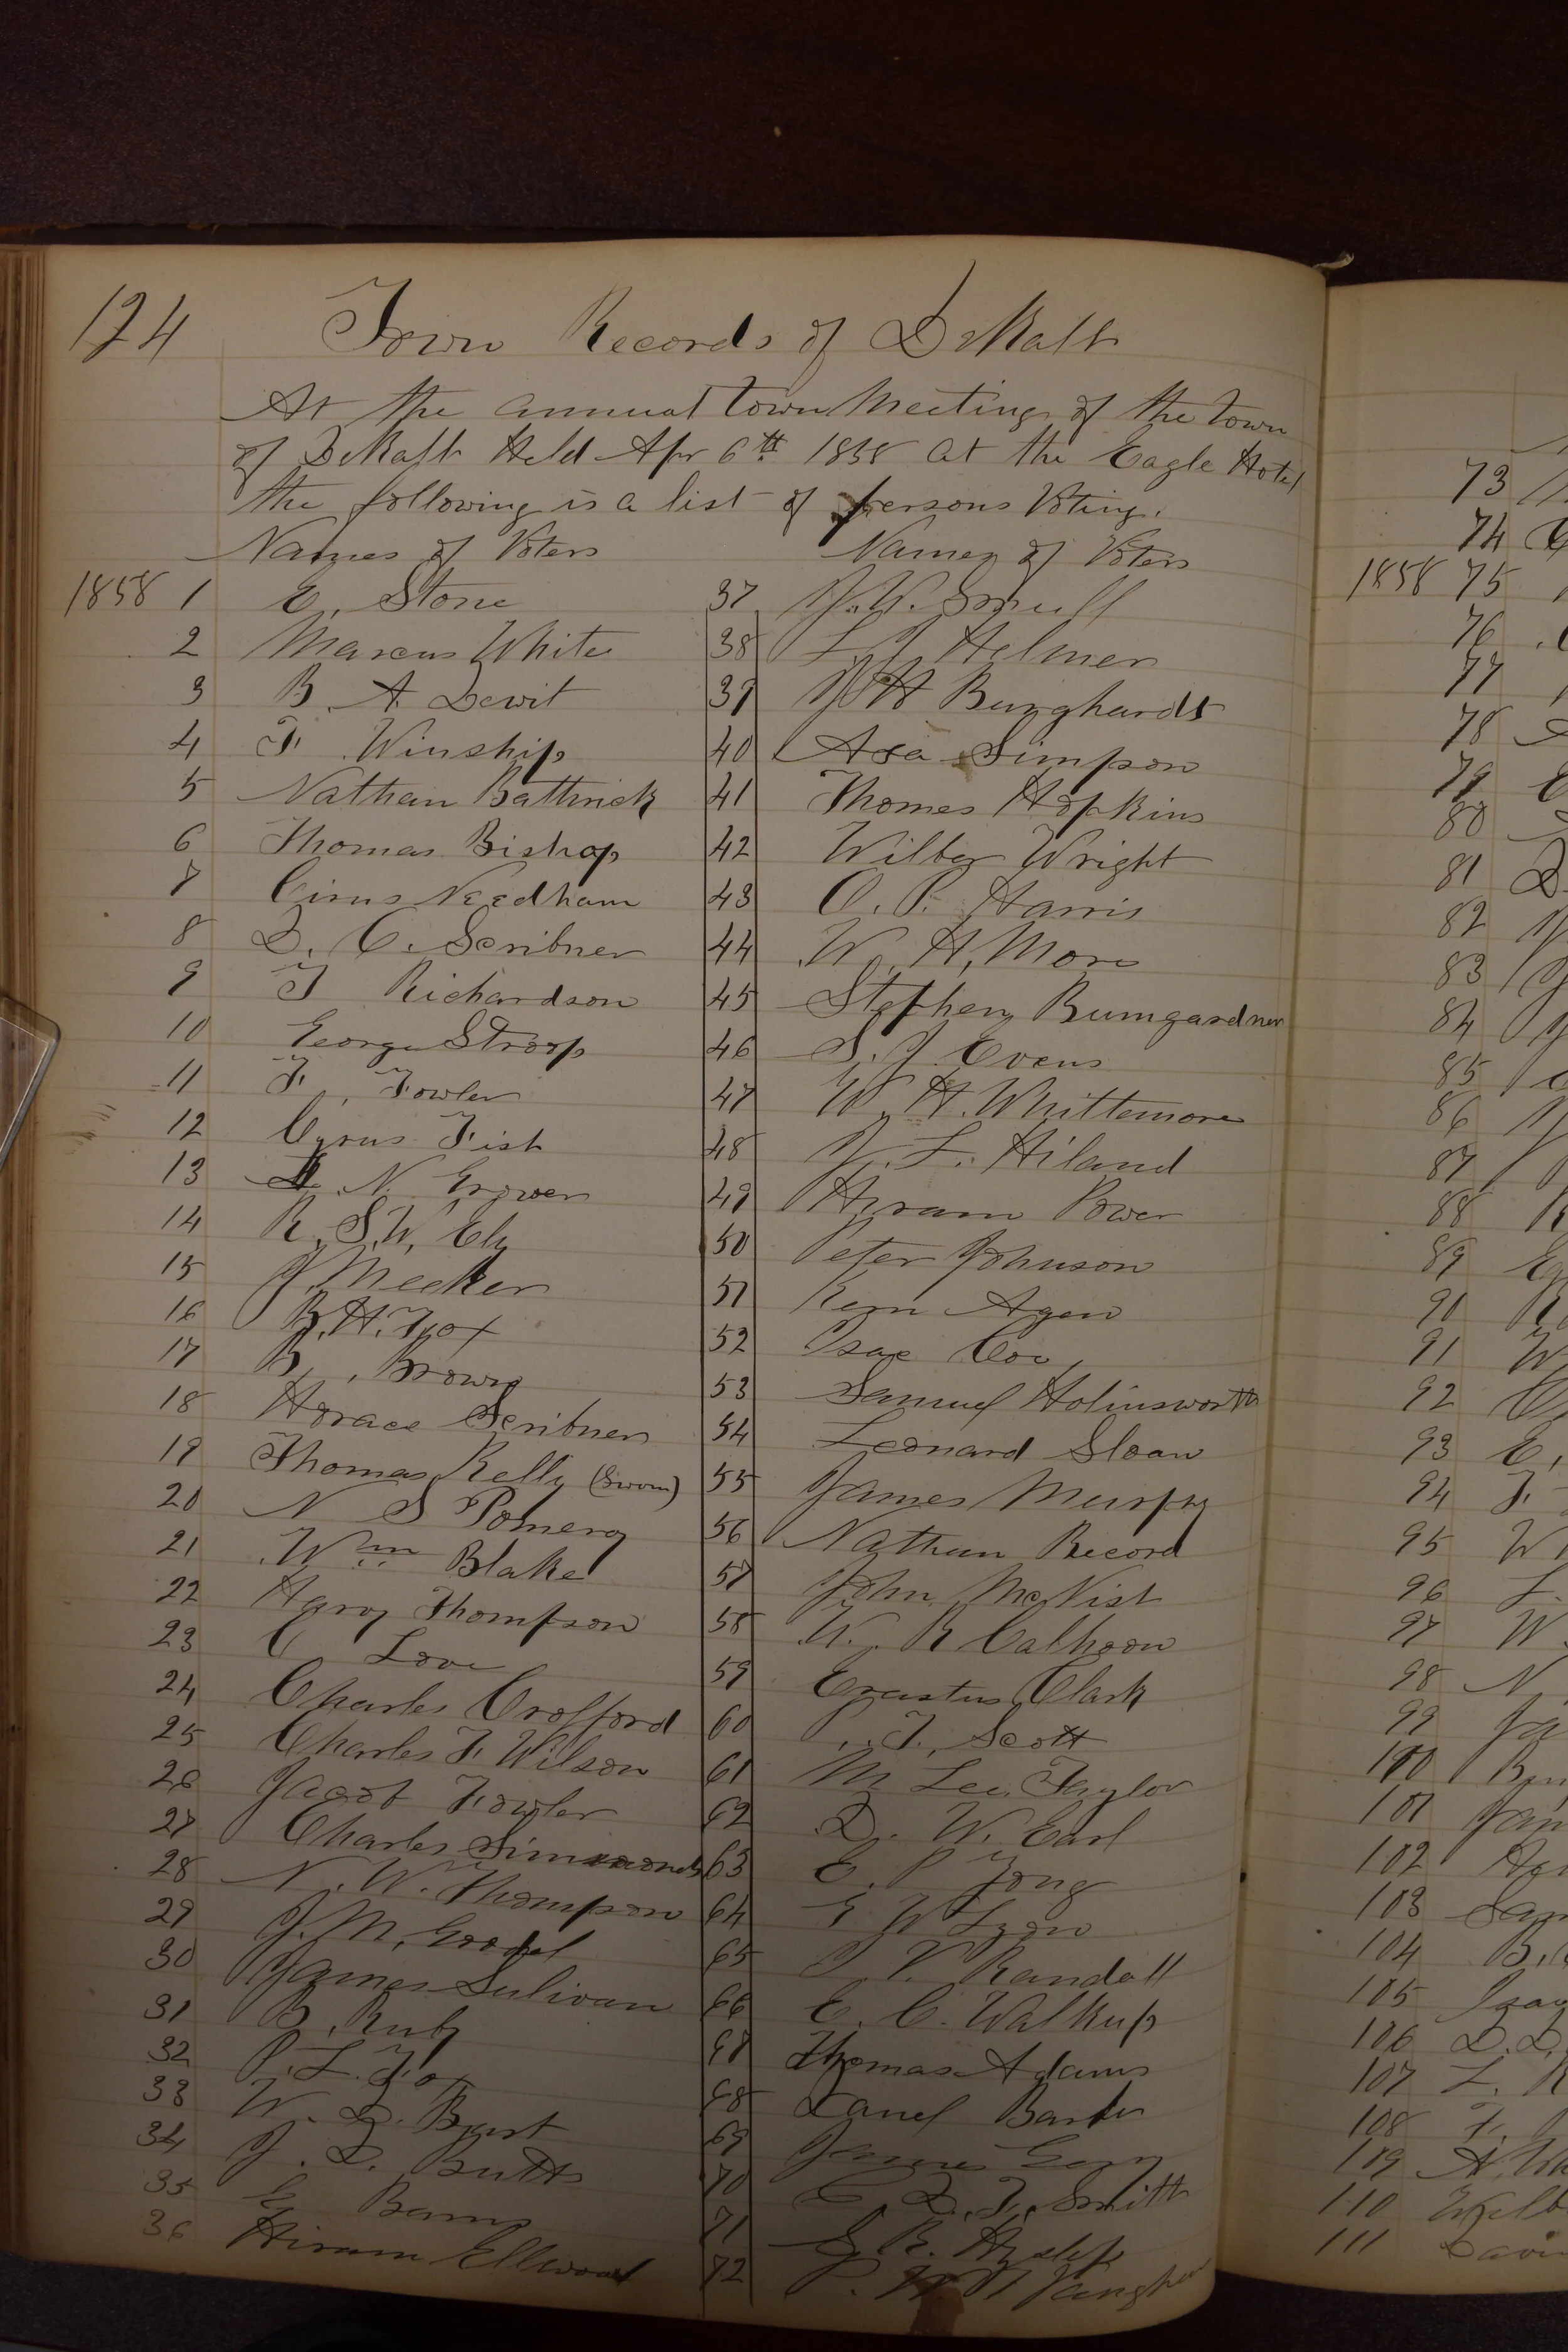 124 Town Records of DeKalb
At the annual Town Meeting of the Town
of DeKalb Held Apr 6th 1858 at the Eagle Hotel
the following is a list of persons Voting.
Names of Voters Names of Voters
1858 1 E. Stone
2 Marcus White
3 B. A. Dewit
4 F. Winship
5 Nathan Battrick
6 Thomas Bishop
7 Cirus Needham
8 D. C. Scribner
9 J Richardson
10 George Stroop
11 F. Fowler
12 Cyrus Fish
13 N. Grover
14 R. S. W. Ely
15 J. Meeker
16 B. H. Fox
17 B. Brown
18 Horace Scribner
19 Thomas Kelly (Sworn)
20 N S Pomeroy
21 Wm Blake
22 Harvy Thompson
23 C Love
24 Charles Crofford
25 Charles F. Wilson
26 Jacob Fowler
27 Charles Simmonds
28 N. W. Thompson
29 J. M. Goodel
30 James Sulivan
31 B. Ruby
32 P. L. Fox
33 W. D. Burt
34 J. D. Butts
35 Barns
36 Hiram Ellwood
37 J. W. Smull
38 L. J. Helmer
39 J H Burghardt
40 Asa Simpson
41 Thomes Hopkins
42 Wilber Wright
43 O. P. Harris
44 W. H. More
45 Stephen Bumgardner
46 S. J. Evens
47 W. H. Whittemore
48 J. L. Hiland
49 Hyram Power
50 Peter Johnson
51 Kern Agen
52 Isac Coe
53 Samuel Holinsworth
54 Leonard Sloan
55 James Murphy
56 Nathan Record
57 John McNist
58 W. R Calhoon
59 Erastus Clark
60 P. T. Scott
61 M Lee Taylor
62 D. W. Earl
63 E. P Young
64 E W Lyon
65 P. V. Randall
66 E. C. Walkup
67 Thomas Adams
68 Daniel Barber
69 James
70 C D. F. Smith
71 S. R. Hyslip
72 P. Vaughan
73
74
1858 75
76
77
78
79
80
81 D.
82
83
84
85
86
87
88
89
90
91 W
92
93 E.
94 F
95 W
96 L.
97 W
98 N.
99
100
101
102
103
104 B.
105
106 D. D.
107 L.
108 F.
109
110
111